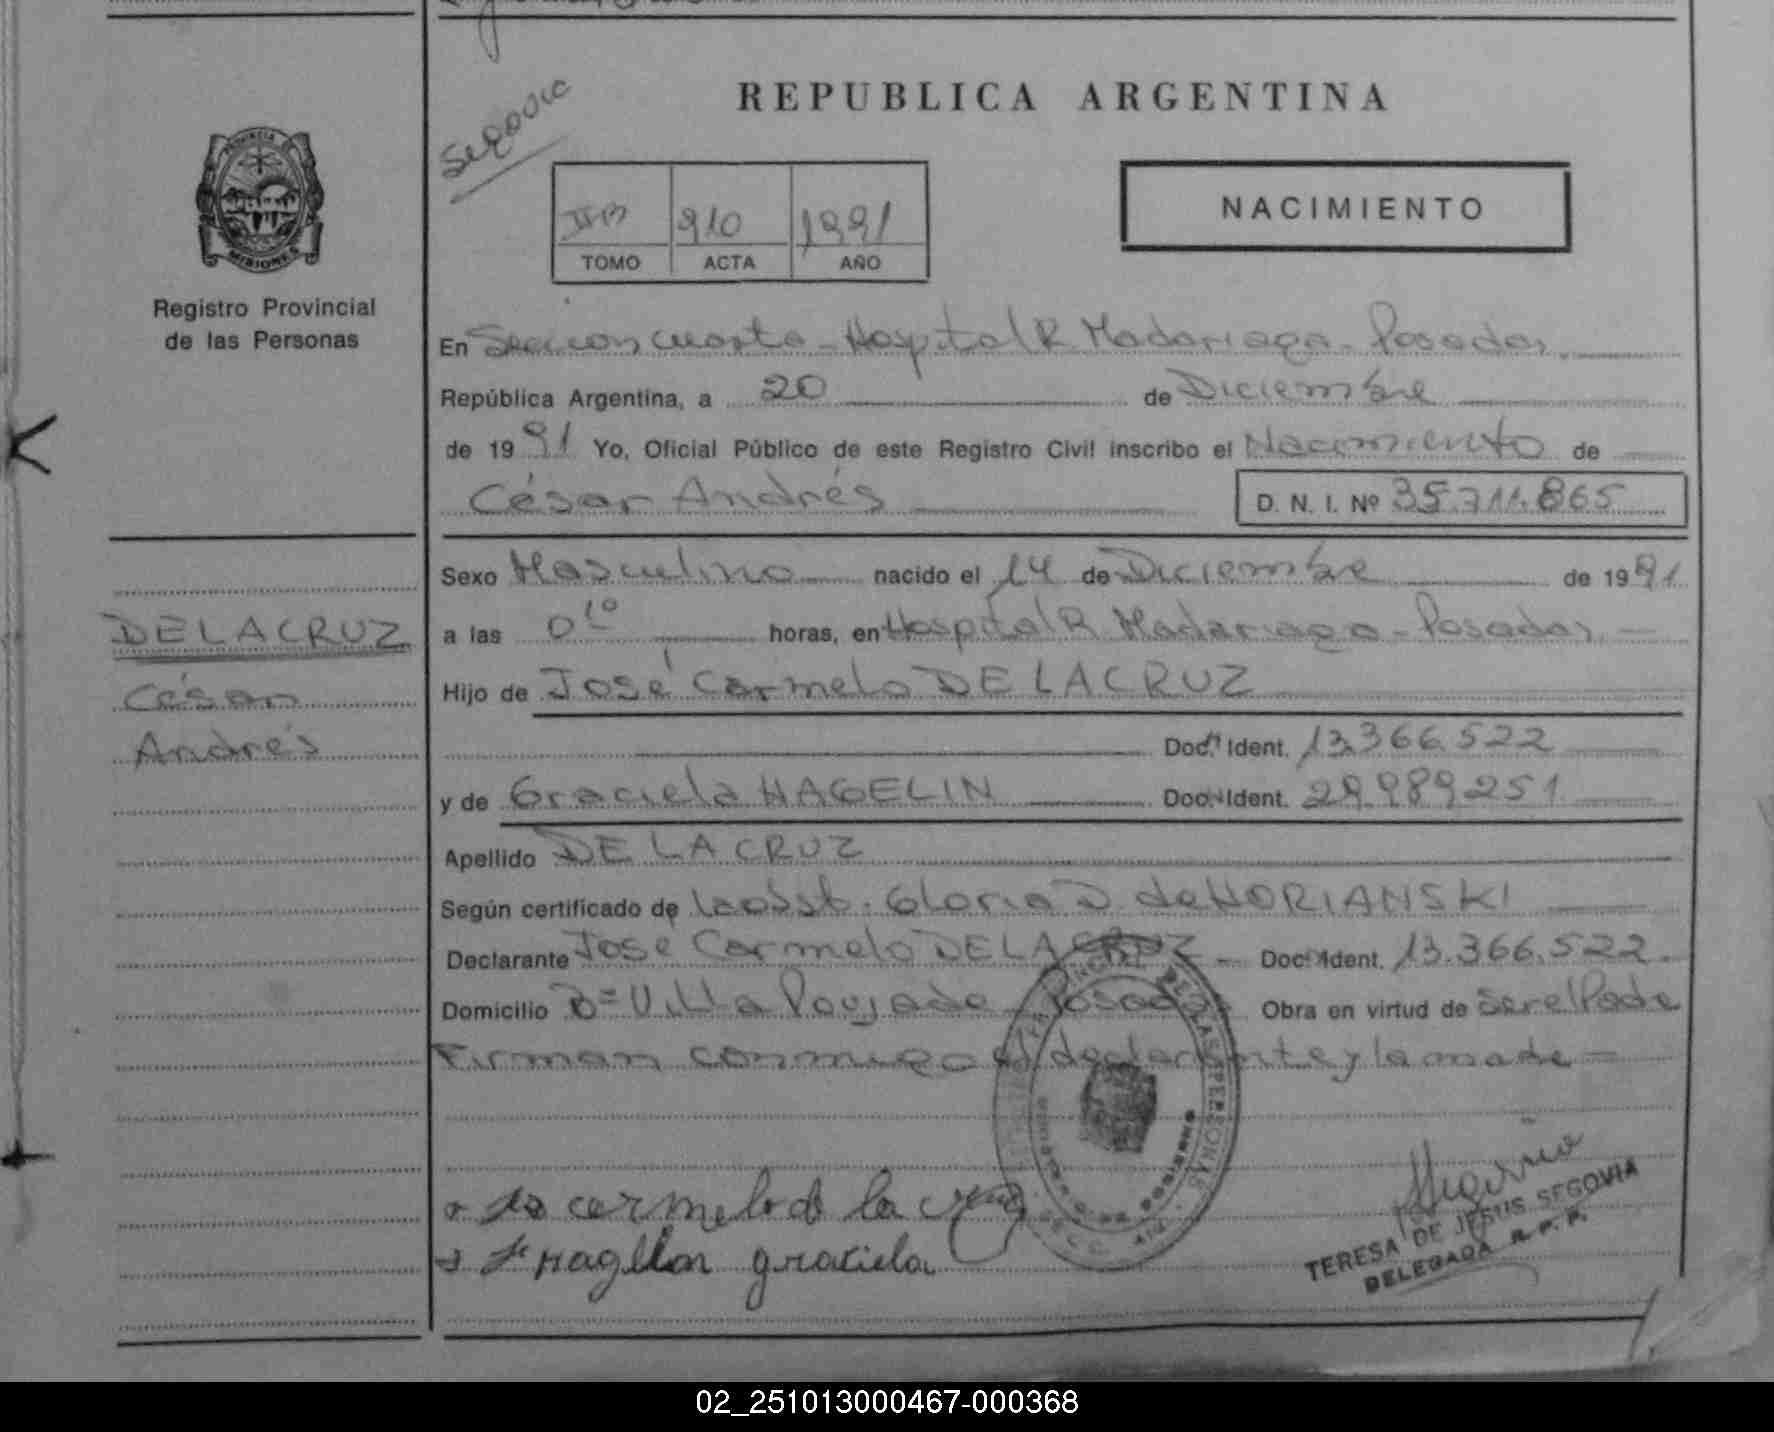 REPUBLICA ARGENTINA
Segovia
NACIMIENTO
IIB 910 1991
TOMO ACTA AÑO
PROVINCIA DE MISIONES
Registro Provincial
de las Personas
En Seccion cuarta - Hospital R Madariaga - Posadas
República Argentina, a 20 de Diciembre
de 1991 Yo, Oficial Público de este Registro Civil inscribo el Nacimiento de
César Andrés D. N. I. Nº 35.711.865
Sexo Masculino nacido el 14 de Diciembre de 1991
a las 01º horas, en Hospital R Madariaga - Posadas
Hijo de José Carmelo DE LA CRUZ
Doc. Ident. 13.366.522
y de Graciela HAGELIN Doc. Ident. 29.989.251
Apellido DE LA CRUZ
Según certificado de la obst. Gloria D. de HORIANSKI
Declarante José Carmelo DE LA CRUZ Doc. Ident. 13.366.522
Domicilio Bº Villa Poujade Posadas Obra en virtud de Ser el Padre
Firman conmigo el declarante y la madre
DE LA CRUZ
César
Andrés
carmelo de la cruz
Hagelin graciela
DE LAS PERSONAS
TERESA DE JESUS SEGOVIA
DELEGADA R. P. P.
02_251013000467-000368